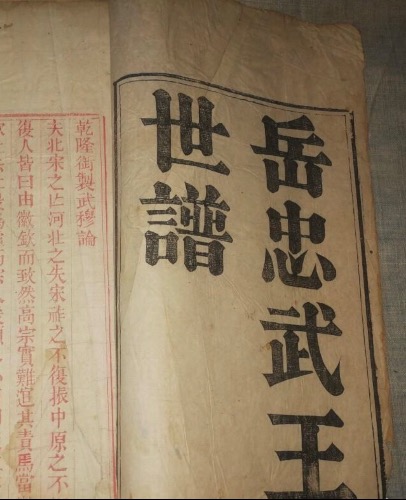 岳忠武王
世譜
乾隆御製武穆論
夫北宋之亡河壮之失宋祚之不復振中原之不
復人皆曰由徽欽而致然高宗實難逭其責馬當